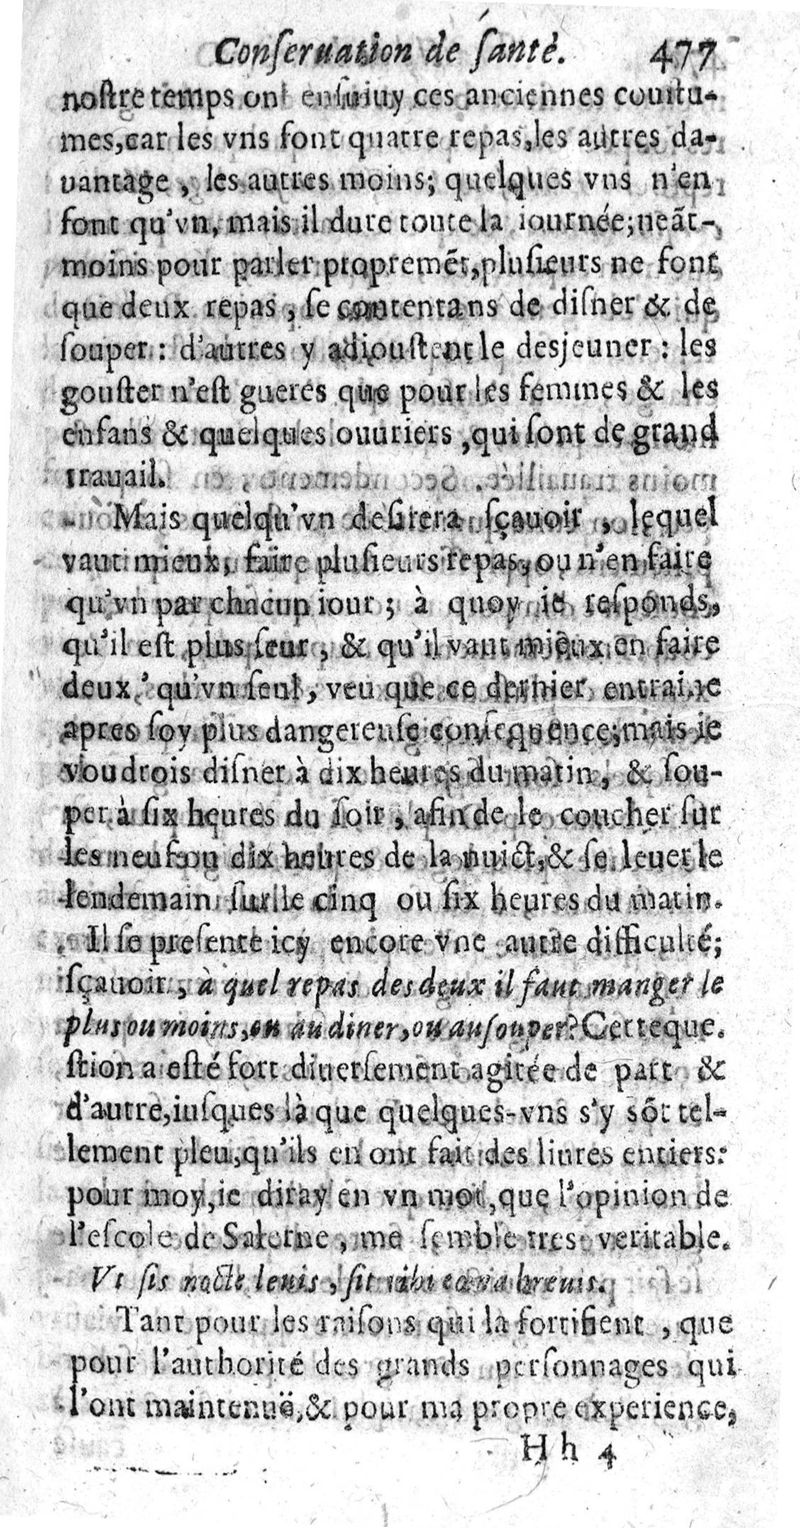 Conſeruation de ſantè. 477
noſtre temps ont enſuiuy ces anciennes couſtu-
mes,car les vns font quatre repas,les autres da-
vantage , les autres moins; quelques vns n'en
font qu'vn, mais il dure toute la iournée;neãt-
moins pour parler propremẽt,pluſieurs ne font
que deux repas , ſe contentans de diſner & de
ſouper : d'autres y adiouſtent le desjeuner : les
gouſter n'eſt gueres que pour les femmes & les
enfans & quelques ouuriers ,qui ſont de grand
trauail.
Mais quelqu'vn deſirera ſçauoir , lequel
vaut mieux, faire pluſieurs repas, ou n'en faire
qu'vn par chacun iour ; à quoy ie reſponds,
qu'il eſt plus ſeur , & qu'il vaut mieux en faire
deux, qu'vn ſeul, veu que ce dernier entraine
apres ſoy plus dangereuſe conſequence;mais ie
voudrois diſner à dix heures du matin, & ſou-
per à ſix heures du ſoir , afin de ſe coucher ſur
les neuf ou dix heures de la nuict,& ſe leuer le
lendemain ſur le cinq ou ſix heures du matin.
Il ſe preſente icy encore vne autre difficulté;
ſçauoir , à quel repas des deux il faut manger le
plus ou moins, ou au diner, ou au ſouper? Cette que-
ſtion a eſté fort diuerſement agitée de part &
d'autre,iuſques là que quelques-vns s'y sõt tel-
lement pleu,qu'ils en ont fait des liures entiers:
pour moy,ie diray en vn mot,que l'opinion de
l'eſcole de Salerne , me ſemble tres veritable.
Vt ſis nocte leuis , ſit tibi cœna breuis.
Tant pour les raiſons qui la fortifient , que
pour l'authorité des grands perſonnages qui
l'ont maintenuë,& pour ma propre experience,
H h 4